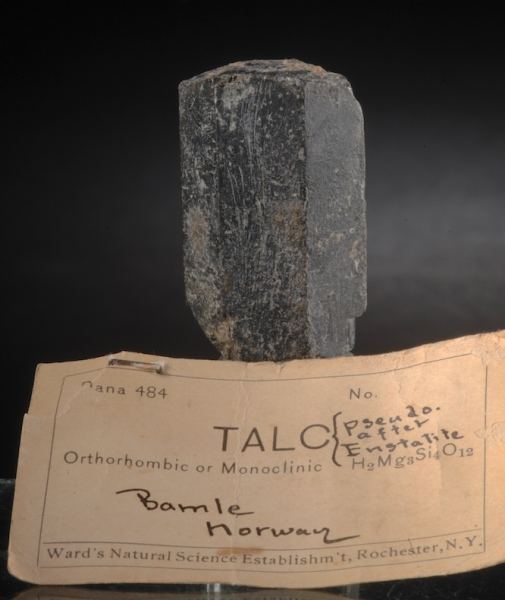 Dana 484 No.
TALC { Pseudo. after Enstatite
Orthorhombic or Monoclinic H₂Mg₃Si₄O₁₂
Bamle
Norway
Ward's Natural Science Establishm't, Rochester, N.Y.